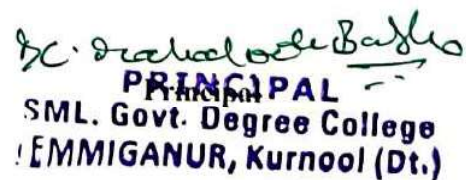 PRINCIPAL
Principal
SML. Govt. Degree College
EMMIGANUR, Kurnool (Dt.)